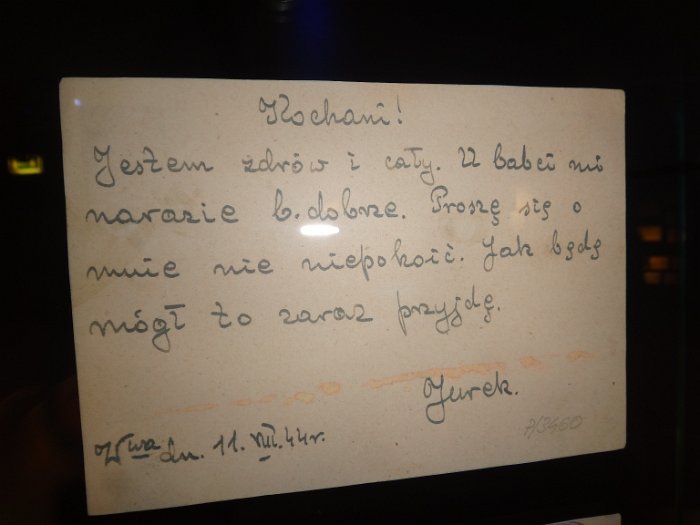 Kochani!
Jestem zdrów i cały. U babci mi
narazie b. dobrze. Proszę się o
mnie nie niepokoić. Jak będę
mógł to zaraz przyjdę.
Jurek.
Wwa dn. 11. VIII. 44r.